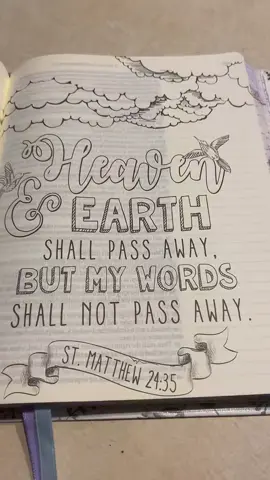 Heaven
& EARTH
SHALL PASS AWAY,
BUT MY WORDS
SHALL NOT PASS AWAY.
ST. MATTHEW 24:35